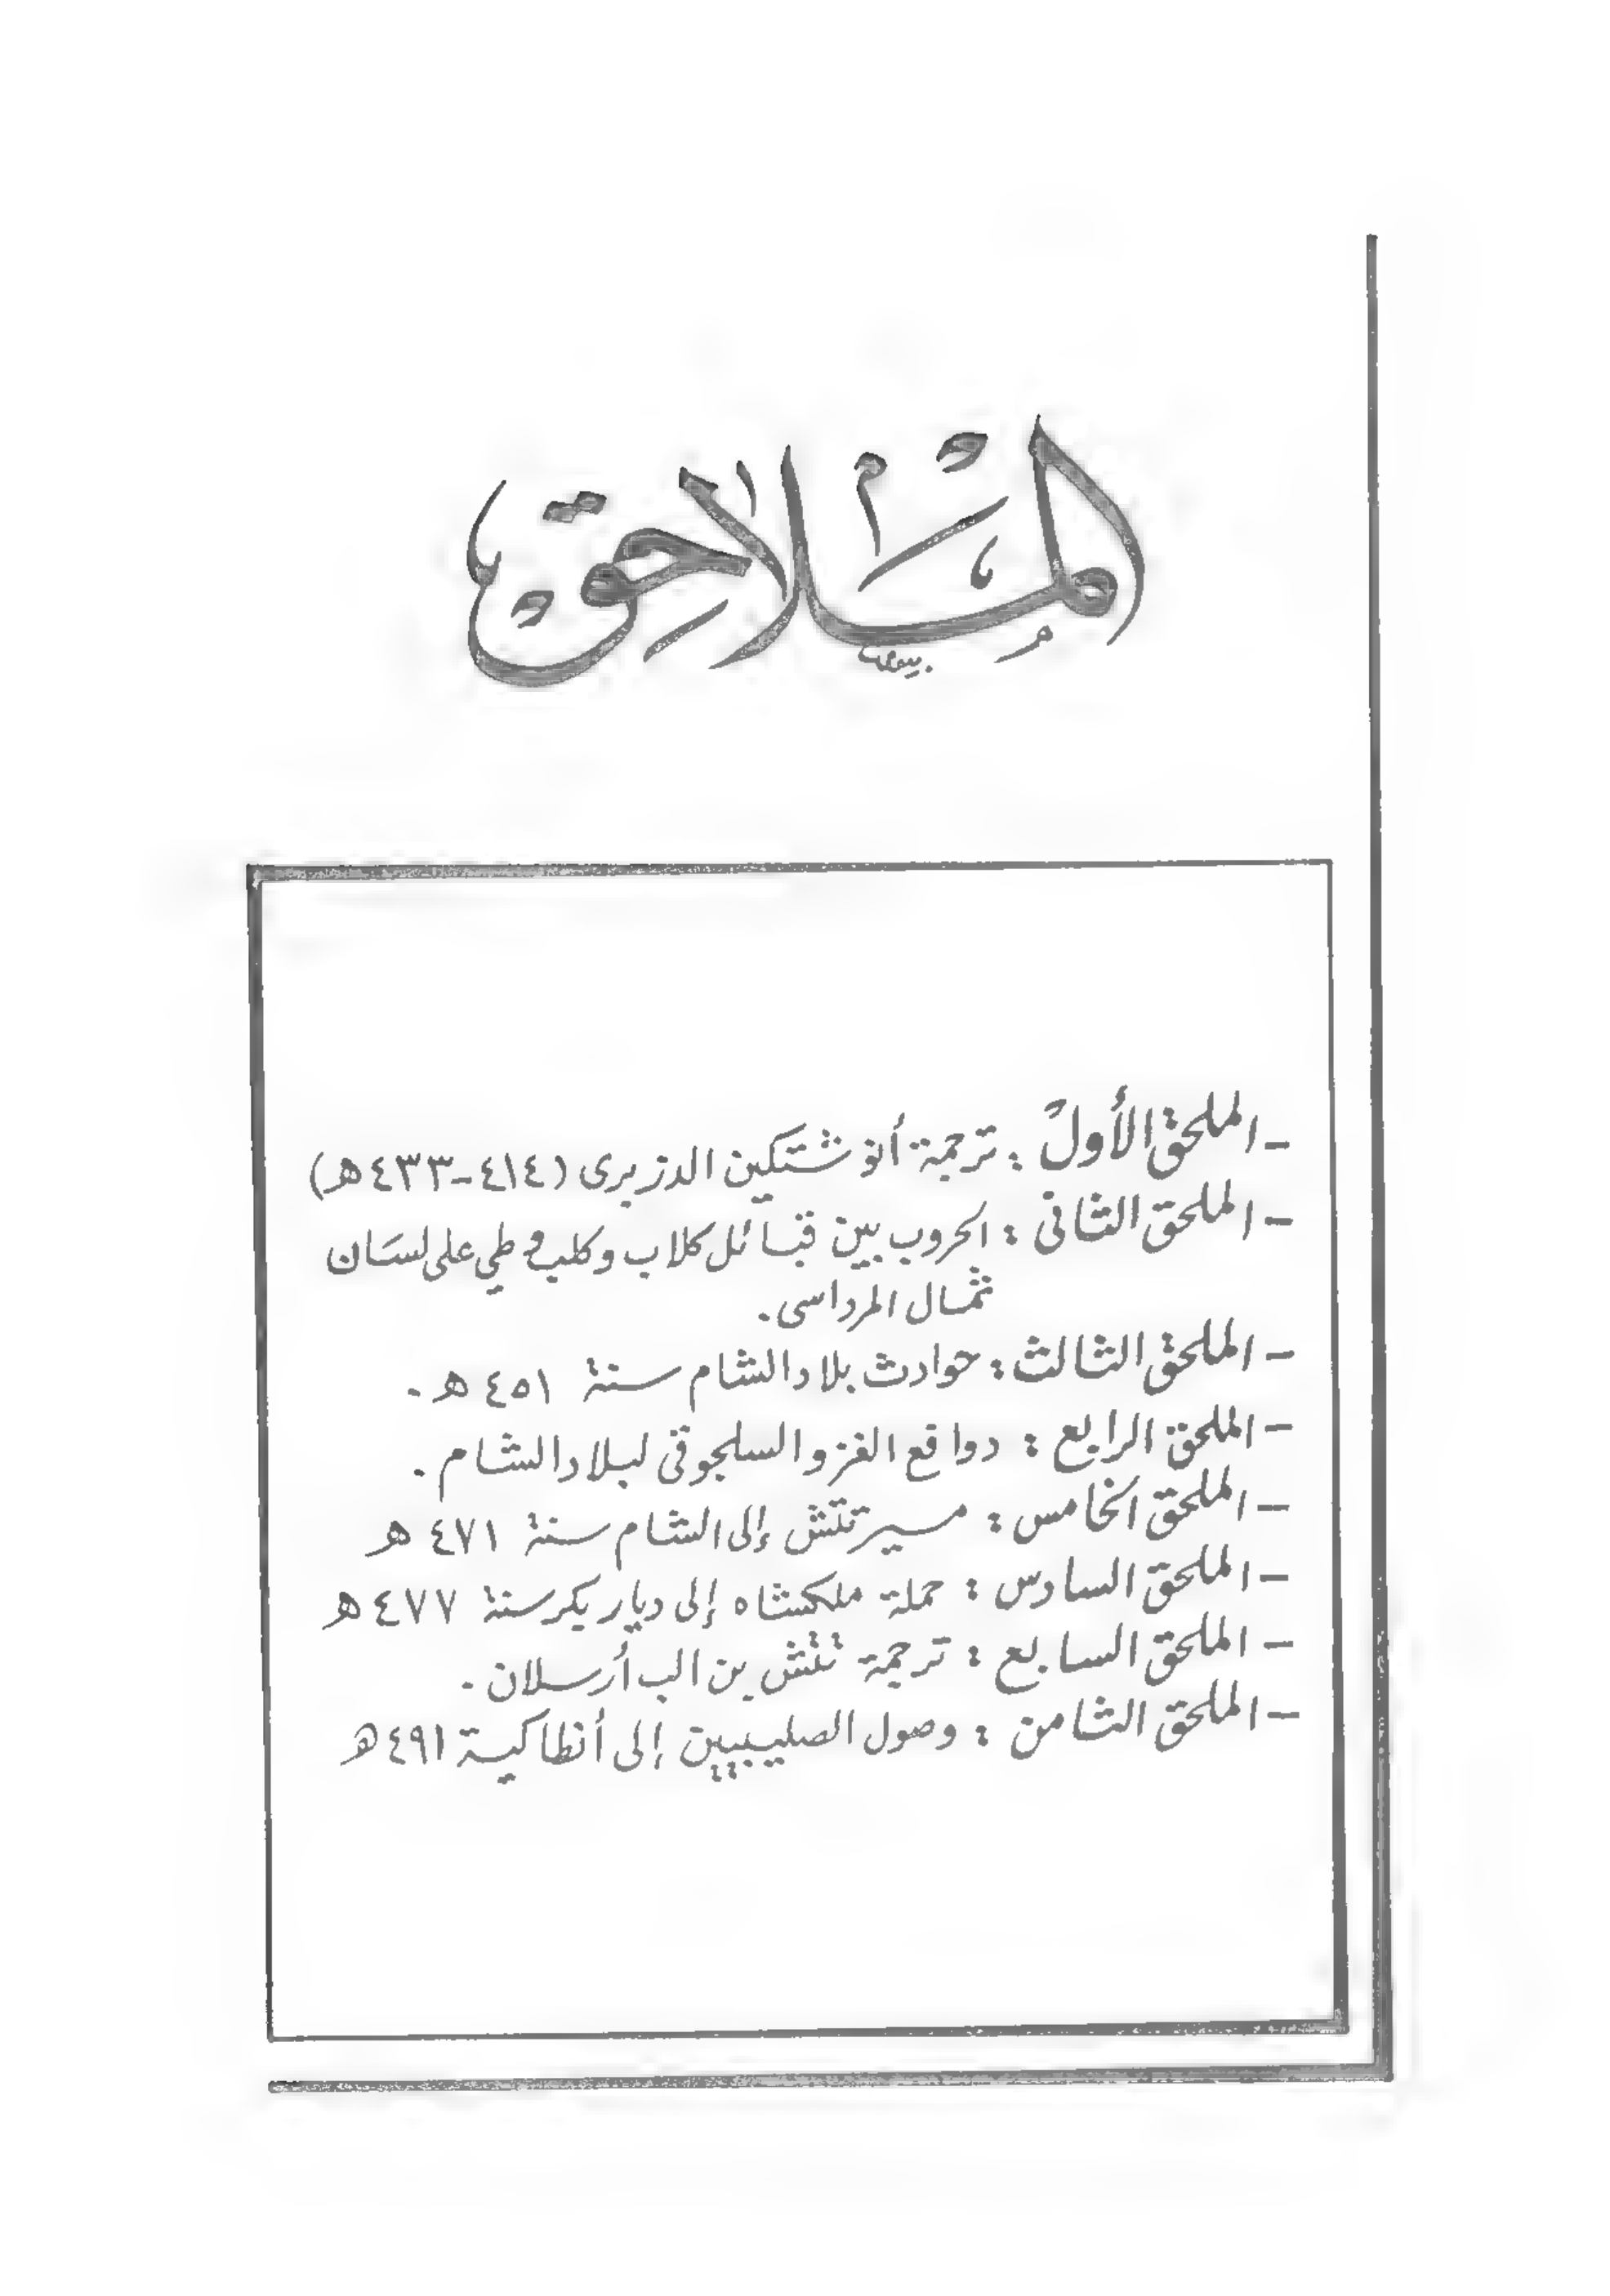 الملاحق
- الملحق الأول : ترجمة أنوشتكين الدزبرى (٤١٤-٤٣٣ هـ)
- الملحق الثانى : الحروب بين قبائل كلاب وكلب وطي على لسان
ثمال المرداسى .
- الملحق الثالث : حوادث بلاد الشام سنة ٤٥١ هـ .
- الملحق الرابع : دوافع الغزو السلجوقى لبلاد الشام .
- الملحق الخامس : مسير تتش إلى الشام سنة ٤٧١ هـ
- الملحق السادس : حملة ملكشاه إلى ديار بكر سنة ٤٧٧ هـ
- الملحق السابع : ترجمة تتش بن الب أرسلان .
- الملحق الثامن : وصول الصليبيين إلى أنطاكية ٤٩١ هـ